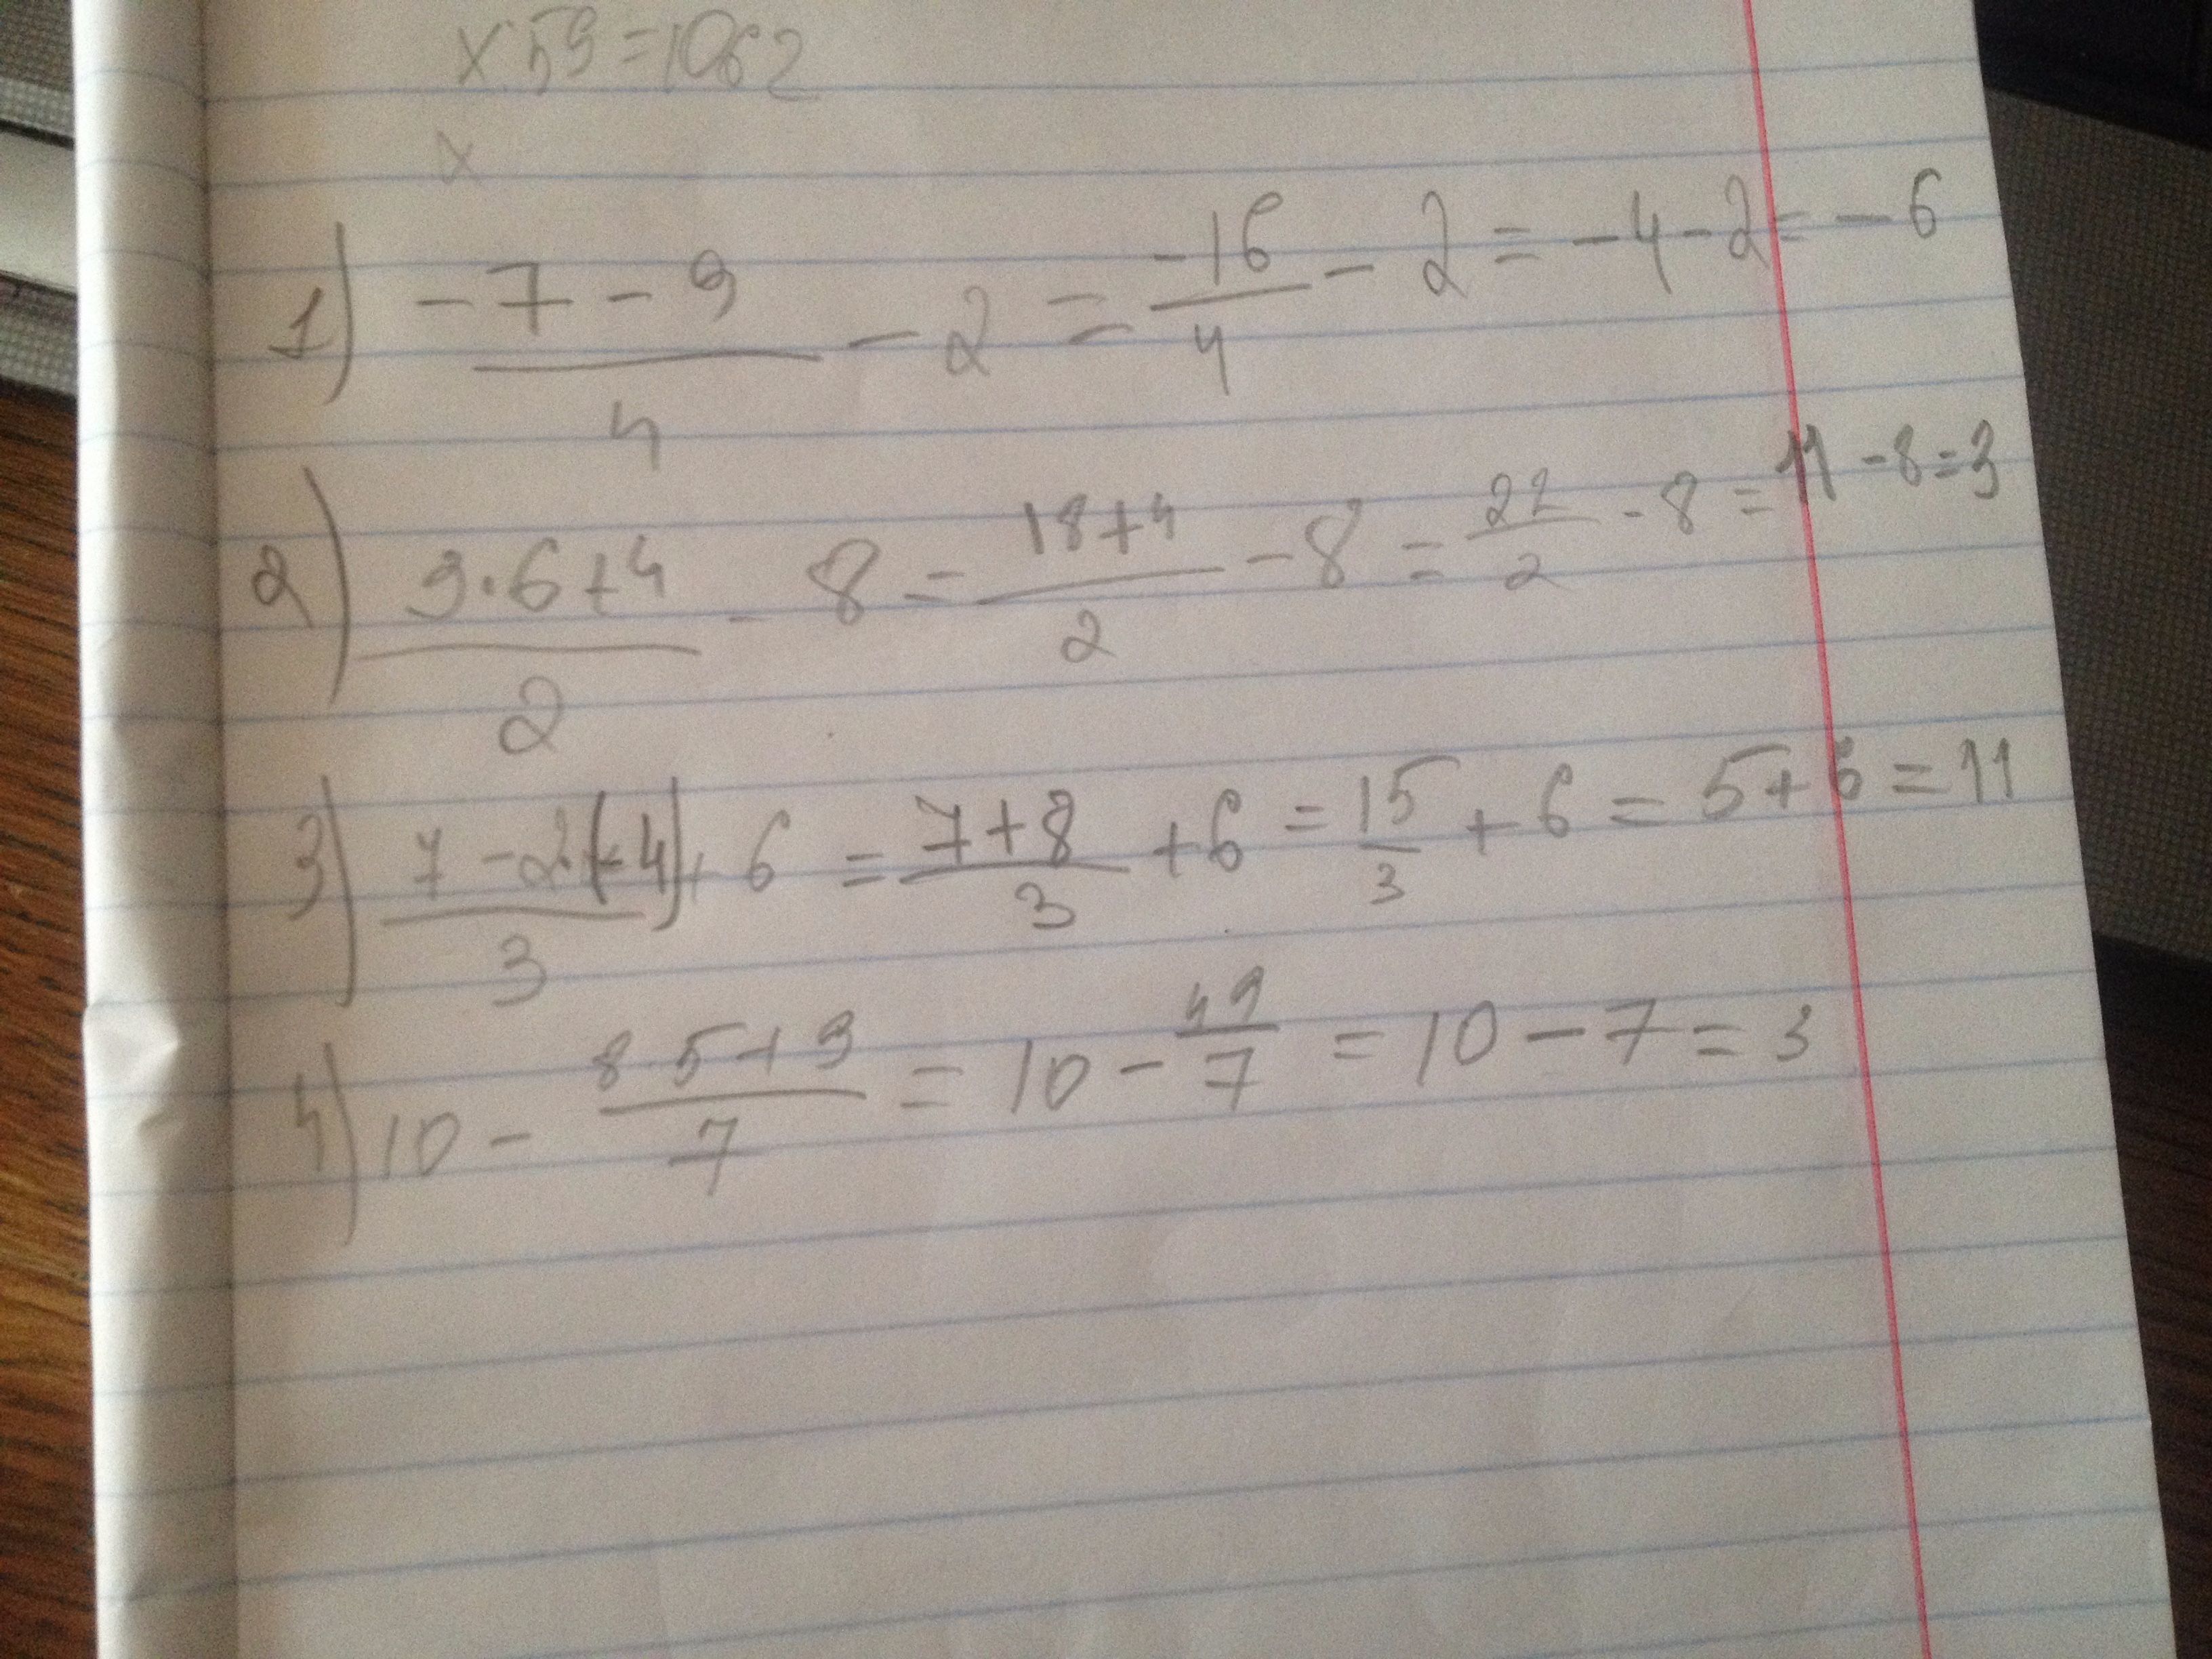 x 59 = 1062
x
1) (-7 - 9)/4 - 2 = -16/4 - 2 = -4 - 2 = -6
2) (3·6+4)/2 - 8 = (18+4)/2 - 8 = 22/2 - 8 = 11 - 8 = 3
3) (7 - 2·(-4))/3 + 6 = (7+8)/3 + 6 = 15/3 + 6 = 5+6 = 11
4) 10 - (8·5+9)/7 = 10 - 49/7 = 10 - 7 = 3